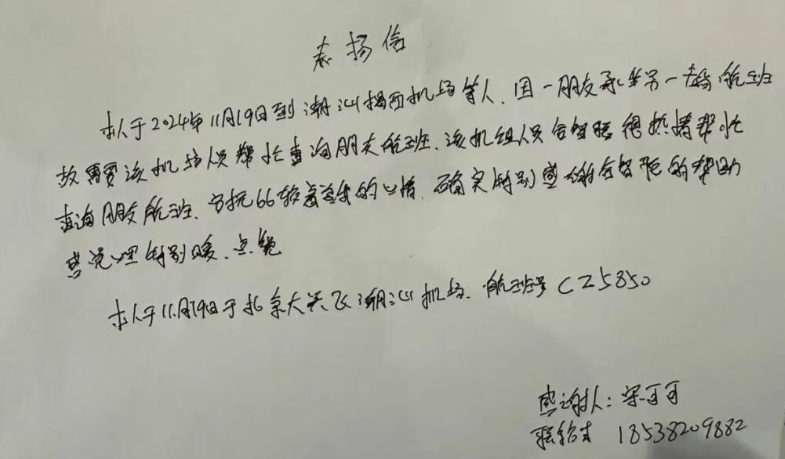 表扬信
本人于2024年11月19日到潮汕揭阳机场等人，因一朋友乘坐另一航班
故需要该机场人员帮忙查询朋友航班，该机组人员 很热情帮忙
查询朋友航班、 的心情，确实特别感谢 的帮助
感觉心里特别暖、点赞
本人于11月19日于北京大兴飞潮汕机场，航班号CZ5850
感谢人：宋可可
联络 18538209882